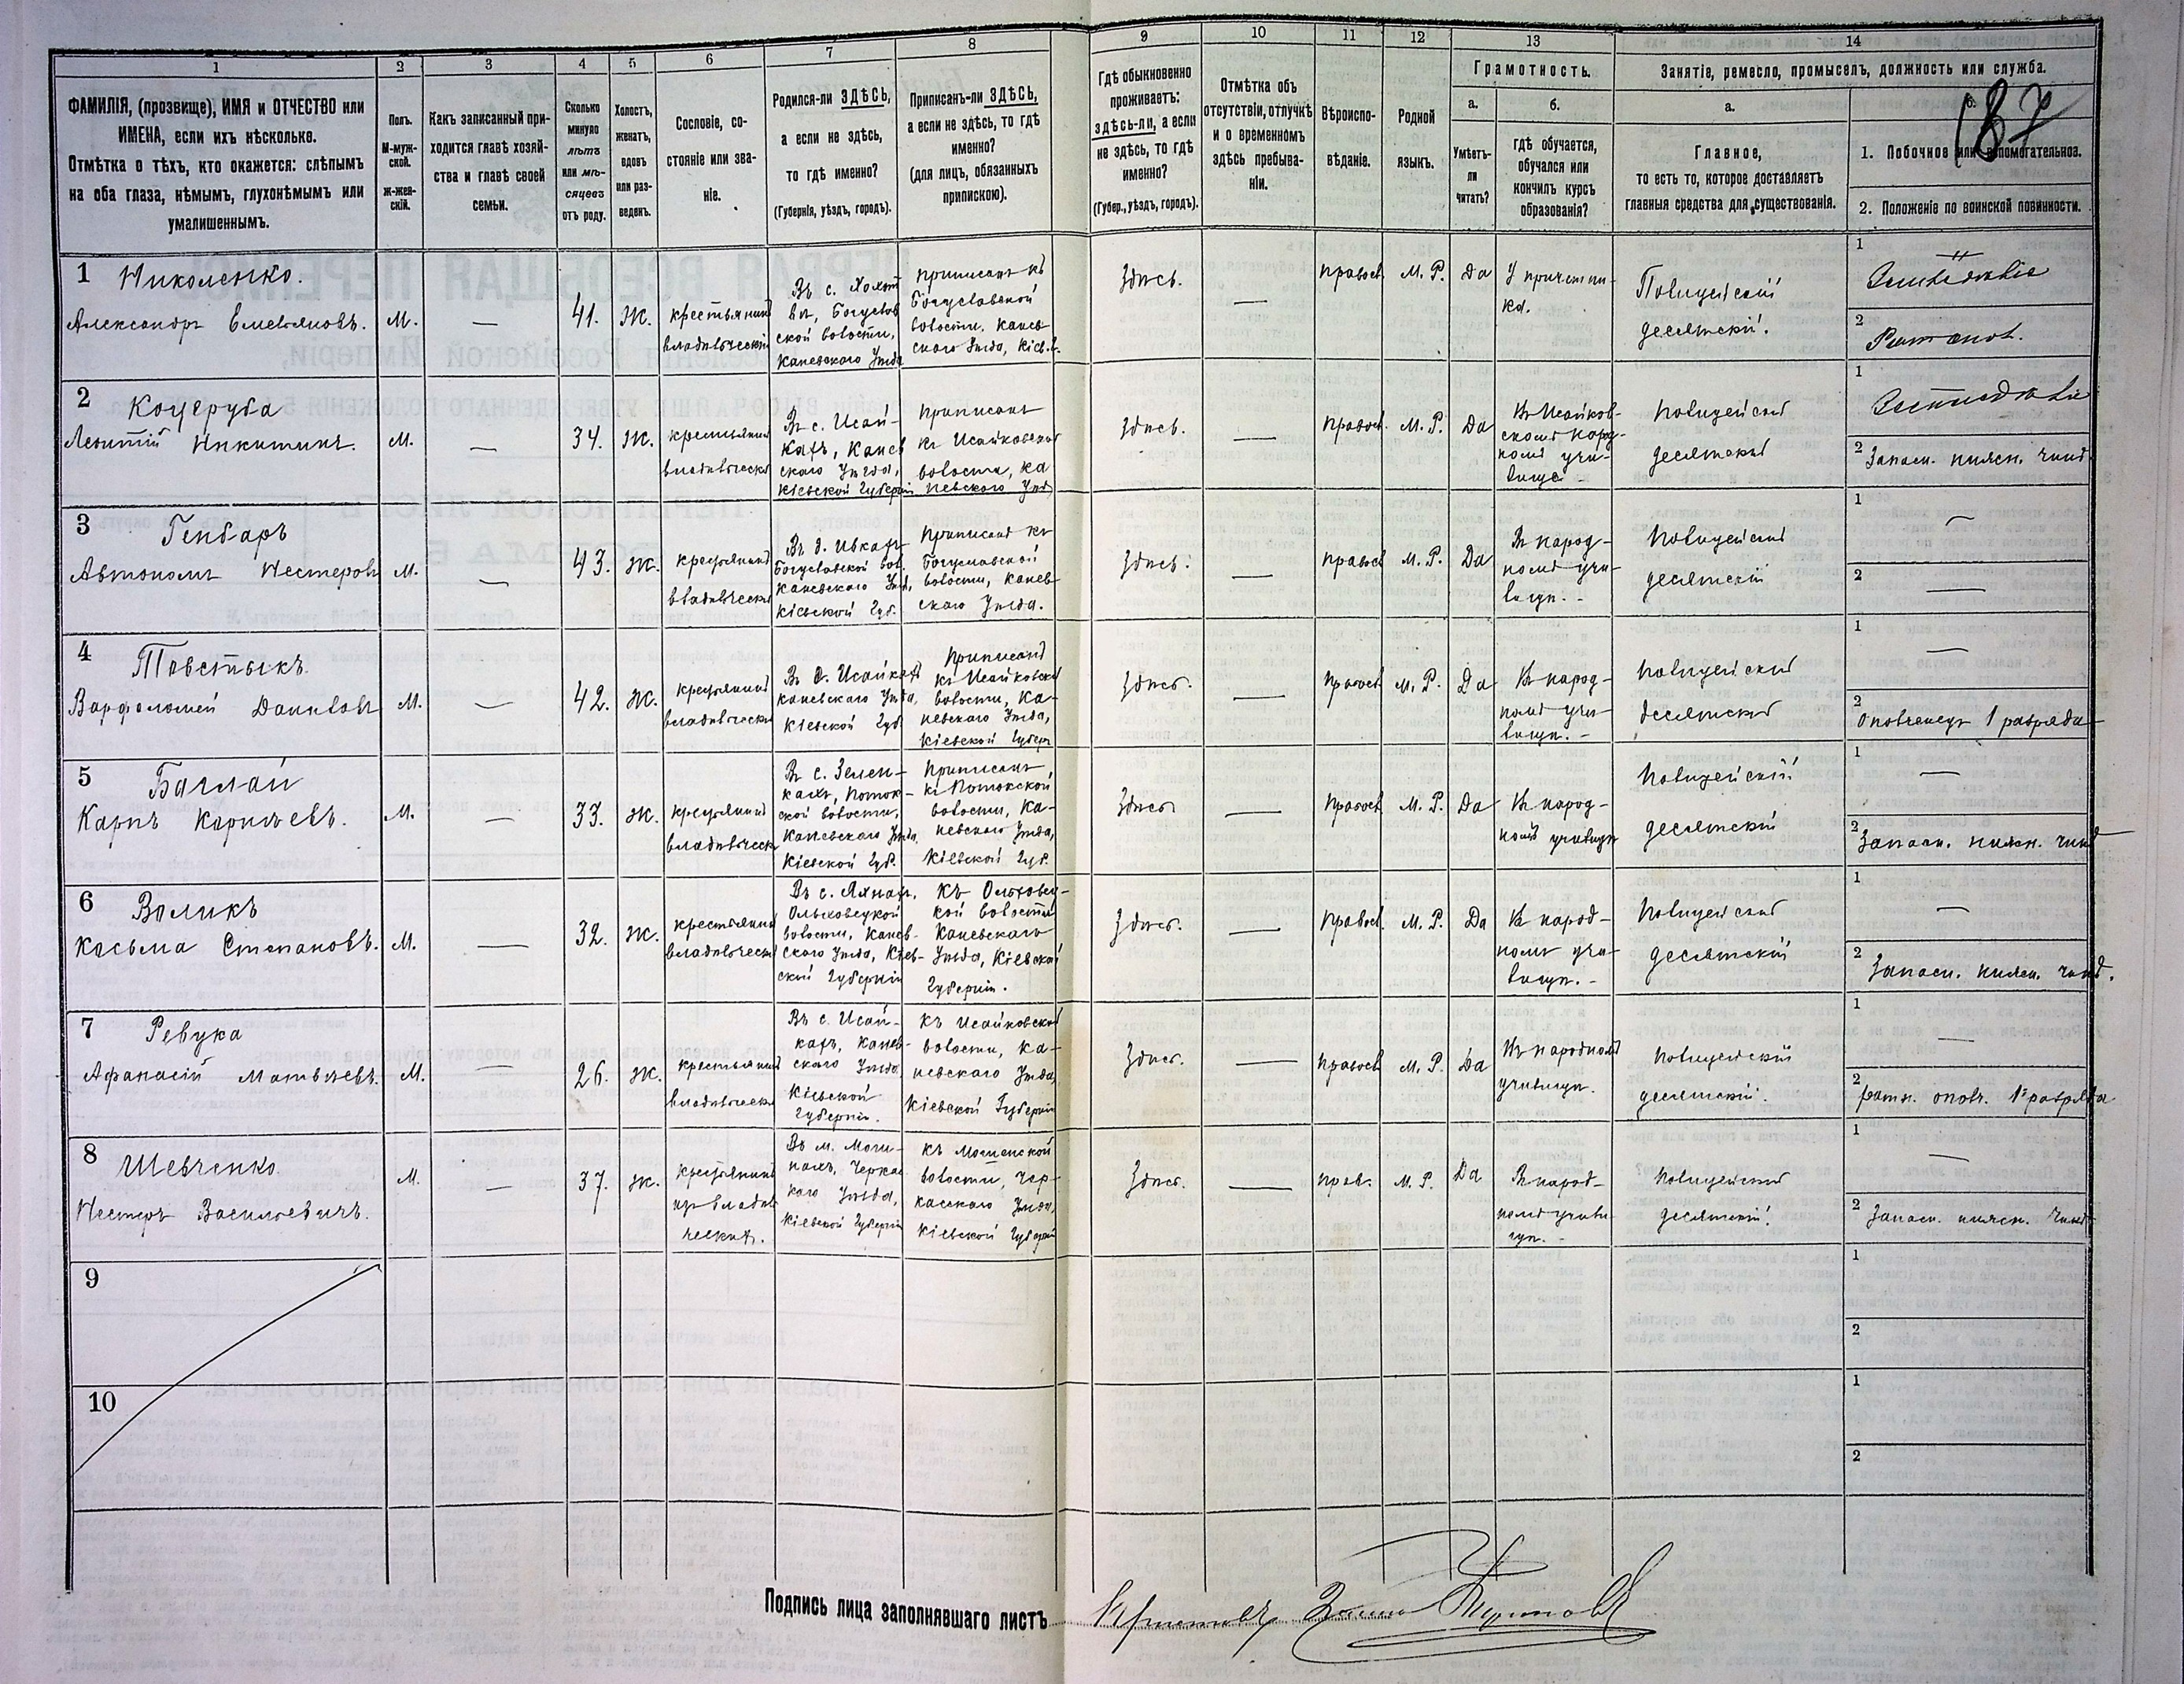 1
2
3
4
5
6
7
8
9
10
11
12
13
14
ФАМИЛІЯ, (прозвище), ИМЯ и ОТЧЕСТВО или
ИМЕНА, если ихъ нѣсколько.
Отмѣтка о тѣхъ, кто окажется: слѣпымъ
на оба глаза, нѣмымъ, глухонѣмымъ или
умалишеннымъ.
Полъ.
М-муж-
ской.
ж-жен-
скій.
Какъ записанный при-
ходится главѣ хозяй-
ства и главѣ своей
семьи.
Сколько
минуло
лѣтъ
или мѣ-
сяцевъ
отъ роду.
Холостъ,
женатъ,
вдовъ
или раз-
веденъ.
Сословіе, со-
стояніе или зва-
ніе.
Родился-ли ЗДѢСЬ,
а если не здѣсь,
то гдѣ именно?
(Губернія, уѣздъ, городъ).
Приписанъ-ли ЗДѢСЬ,
а если не здѣсь, то гдѣ
именно?
(для лицъ, обязанныхъ
припискою).
Гдѣ обыкновенно
проживаетъ:
здѣсь-ли, а если
не здѣсь, то гдѣ
именно?
(Губер., уѣздъ, городъ).
Отмѣтка объ
отсутствіи, отлучкѣ
и о временномъ
здѣсь пребыва-
ніи.
Вѣроиспо-
вѣданіе.
Родной
языкъ.
Грамотность.
а.
Умѣетъ-
ли
читать?
б.
гдѣ обучается,
обучался или
кончилъ курсъ
образованія?
Занятіе, ремесло, промыселъ, должность или служба.
а.
Главное,
то есть то, которое доставляетъ
главныя средства для существованія.
б.
187
1. Побочное или вспомогательное.
2. Положеніе по воинской повинности.
1 Николенко.
Александръ Емельяновъ. М. — 41. Ж. крестьянинъ
владѣльческій
Богуслав
ской волости,
Каневскаго Уѣзда
приписанъ къ
Богуславской
волости, Канев
скаго Уѣзда, Кіев. г.
Здѣсь. — правосл. М. Р. Да У причетни-
ка.
Полицейскій
десятскій.
1 Земледѣліе
2 Ратникъ.
2 Кочеруба
Леонтій Никитинъ. М. — 34. Ж. крестьянинъ
владѣльческ
Въ с. Исай-
кахъ, Канев
скаго Уѣзда,
Кіевской Губерніи
приписанъ
къ Исайковской
волости, Ка
невскаго Уѣз
Здѣсь. — правосл. М. Р. Да Въ Исайков-
скомъ народ-
номъ учи-
лищѣ -
полицейскій
десятскій
1 Земледѣліе
2 Запасн. нижн. чинъ
3
Автономъ Нестеровъ М. — 43. Ж. крестьянинъ
владѣльческ
Богуславской вол.
Каневскаго Уѣзд,
Кіевской Губ.
приписанъ къ
Богуславской
волости, Канев-
скаго Уѣзда.
Здѣсь. — правосл М. Р. Да Въ народ-
номъ учи-
лищѣ. -
полицейскій
десятскій
1 —
2 —
4 Товстыкъ
Варфоломей Даниловъ М. — 42. Ж. крестьянинъ
владѣльческ
Въ с. Исайкахъ
Каневскаго Уѣзда,
Кіевской Губ
приписанъ
къ Исайковской
волости, Ка-
невскаго Уѣзда,
Кіевской Губерн
Здѣсь. — правосл М. Р. Да Въ народ-
номъ учи-
лищѣ. -
полицейскій
десятскій
1 —
2 ополченецъ 1 разряда
5 Баглай
Карпъ Корнѣевъ. М. — 33. Ж. крестьянинъ
владѣльческ
Въ с. Зелен-
кахъ, Поток-
ской волости,
Каневскаго Уѣзда,
Кіевской Губ.
приписанъ
къ Потокской
волости, Ка-
невскаго Уѣзда,
Кіевской Губ.
Здѣсь — правосл М. Р. Да Въ народ-
номъ училищѣ
полицейскій
десятскій
1 —
2 Запасн. нижн. чинъ
6 Воликъ
Косьма Степановъ. М. — 32. Ж. крестьянинъ
владѣльческ
Въ с. Яхнахъ,
Ольховецкой
волости, Канев-
скаго Уѣзда, Кіев-
ской Губерніи
къ Ольховец-
кой волости
Каневскаго
Уѣзда, Кіевской
Губерніи.
Здѣсь. — правосл. М. Р. Да Въ народ-
номъ учи-
лищѣ. -
полицейскій
десятскій
1 —
2 Запасн. нижн. чинъ.
7 Ревука
Афанасій Матвѣевъ. М. — 26. Ж. крестьянинъ
владѣльческ
Въ с. Исай-
кахъ, Канев-
скаго Уѣзда,
Кіевской
Губерніи.
къ Исайковской
волости, Ка-
невскаго Уѣзда,
Кіевской Губерніи
Здѣсь. — правосл М. Р. Да Въ народномъ
училищѣ.
полицейскій
десятскій.
1 —
2 ратн. опол. 1 разряда
8 Шевченко
Несторъ Васильевичъ. М. — 37. Ж. крестьянинъ
изъ владѣль
ческихъ.
Въ м. Мош-
нахъ, Черкас
каго Уѣзда,
Кіевской Губерніи
къ Мошенской
волости, Чер-
касскаго Уѣзда,
Кіевской Губерніи
Здѣсь. — прав. М. Р. Да Въ народ-
номъ учили
щѣ. -
полицейскій
десятскій.
1 —
2 Запасн. нижн. чинъ
9
1
2
10
1
2
Подпись лица заполнявшаго листъ